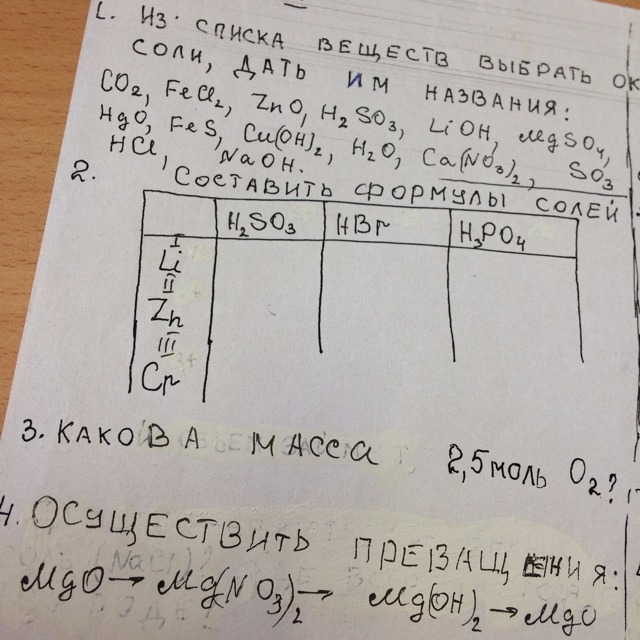 1. ИЗ СПИСКА ВЕЩЕСТВ ВЫБРАТЬ ОК
СОЛИ, ДАТЬ ИМ НАЗВАНИЯ:
CO₂, FeCl₂, ZnO, H₂SO₃, LiOH, MgSO₄,
HgO, FeS, Cu(OH)₂, H₂O, Ca(NO₃)₂, SO₃
HCl, NaOH.
2. СОСТАВИТЬ ФОРМУЛЫ СОЛЕЙ
H₂SO₃ HBr H₃PO₄
I
Li
II
Zn
III
Cr
3. КАКОВА МАССА 2,5 моль O₂?
4. ОСУЩЕСТВИТЬ ПРЕВАЩЕНИЯ:
MgO → Mg(NO₃)₂ → Mg(OH)₂ → MgO